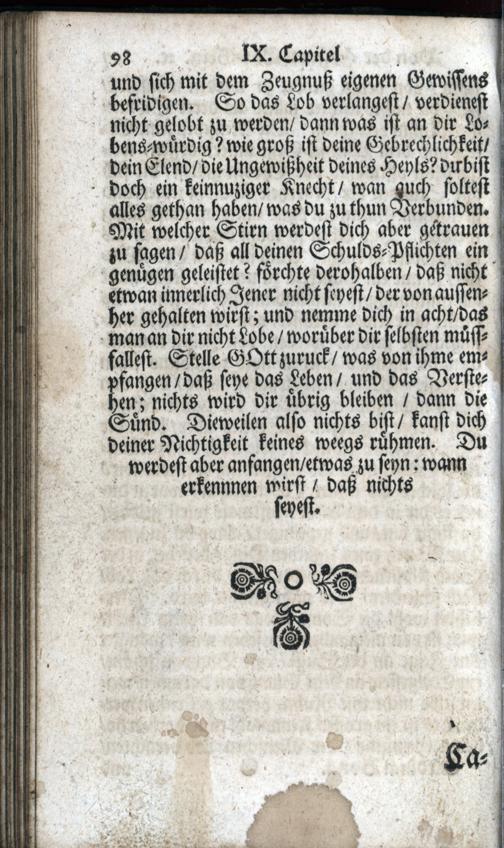 98 IX. Capitel
und sich mit dem Zeugnuß eigenen Gewissens
befridigen. So das Lob verlangest / verdienest
nicht gelobt zu werden / dann was ist an dir Lo-
bens-würdig? wie groß ist deine Gebrechlichkeit /
dein Elend / die Ungewißheit deines Heyls? du bist
doch ein keinnuziger Knecht / wan auch soltest
alles gethan haben / was du zu thun Verbunden.
Mit welcher Stirn werdest dich aber getrauen
zu sagen / daß all deinen Schulds-Pflichten ein
genügen geleistet? förchte derohalben / daß nicht
etwan innerlich Jener nicht seyest / der von aussen-
her gehalten wirst; und nemme dich in acht / das
man an dir nicht Lobe / worüber dir selbsten müss-
fallest. Stelle GOtt zuruck / was von ihme em-
pfangen / daß seye das Leben / und das Verste-
hen; nichts wird dir übrig bleiben / dann die
Sünd. Dieweilen also nichts bist / kanst dich
deiner Nichtigkeit keines weegs rühmen. Du
werdest aber anfangen / etwas zu seyn: wann
erkennnen wirst / daß nichts
seyest.
Ca-